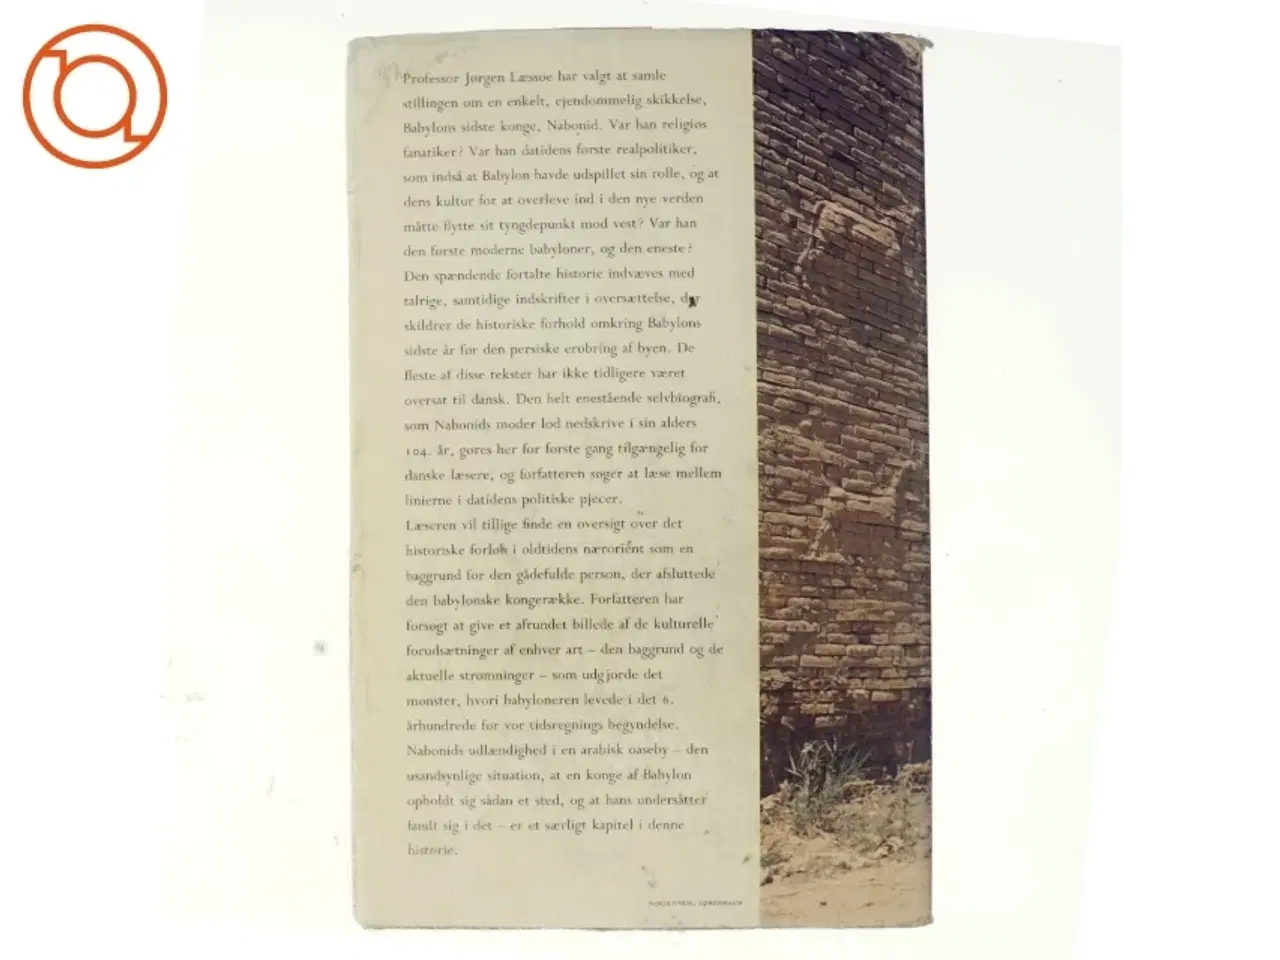 Professor Jørgen Læssøe har valgt at samle
stillingen om en enkelt, ejendommelig skikkelse,
Babylons sidste konge, Nabonid. Var han religiøs
fanatiker? Var han datidens første realpolitiker,
som indså at Babylon havde udspillet sin rolle, og at
dens kultur for at overleve ind i den nye verden
måtte flytte sit tyngdepunkt mod vest? Var han
den første moderne babyloner, og den eneste?
Den spændende fortalte historie indvæves med
talrige, samtidige indskrifter i oversættelse, der
skildrer de historiske forhold omkring Babylons
sidste år før den persiske erobring af byen. De
fleste af disse tekster har ikke tidligere været
oversat til dansk. Den helt enestående selvbiografi,
som Nabonids moder lod nedskrive i sin alders
104. år, gøres her for første gang tilgængelig for
danske læsere, og forfatteren søger at læse mellem
linierne i datidens politiske pjecer.
Læseren vil tillige finde en oversigt over det
historiske forløb i oldtidens nærorient som en
baggrund for den gådefulde person, der afsluttede
den babylonske kongerække. Forfatteren har
forsøgt at give et afrundet billede af de kulturelle
forudsætninger af enhver art – den baggrund og de
aktuelle strømninger – som udgjorde det
mønster, hvori babyloneren levede i det 6.
århundrede før vor tidsregnings begyndelse.
Nabonids udlændighed i en arabisk oaseby – den
usandsynlige situation, at en konge af Babylon
opholdt sig sådan et sted, og at hans undersåtter
fandt sig i det – er et særligt kapitel i denne
historie.